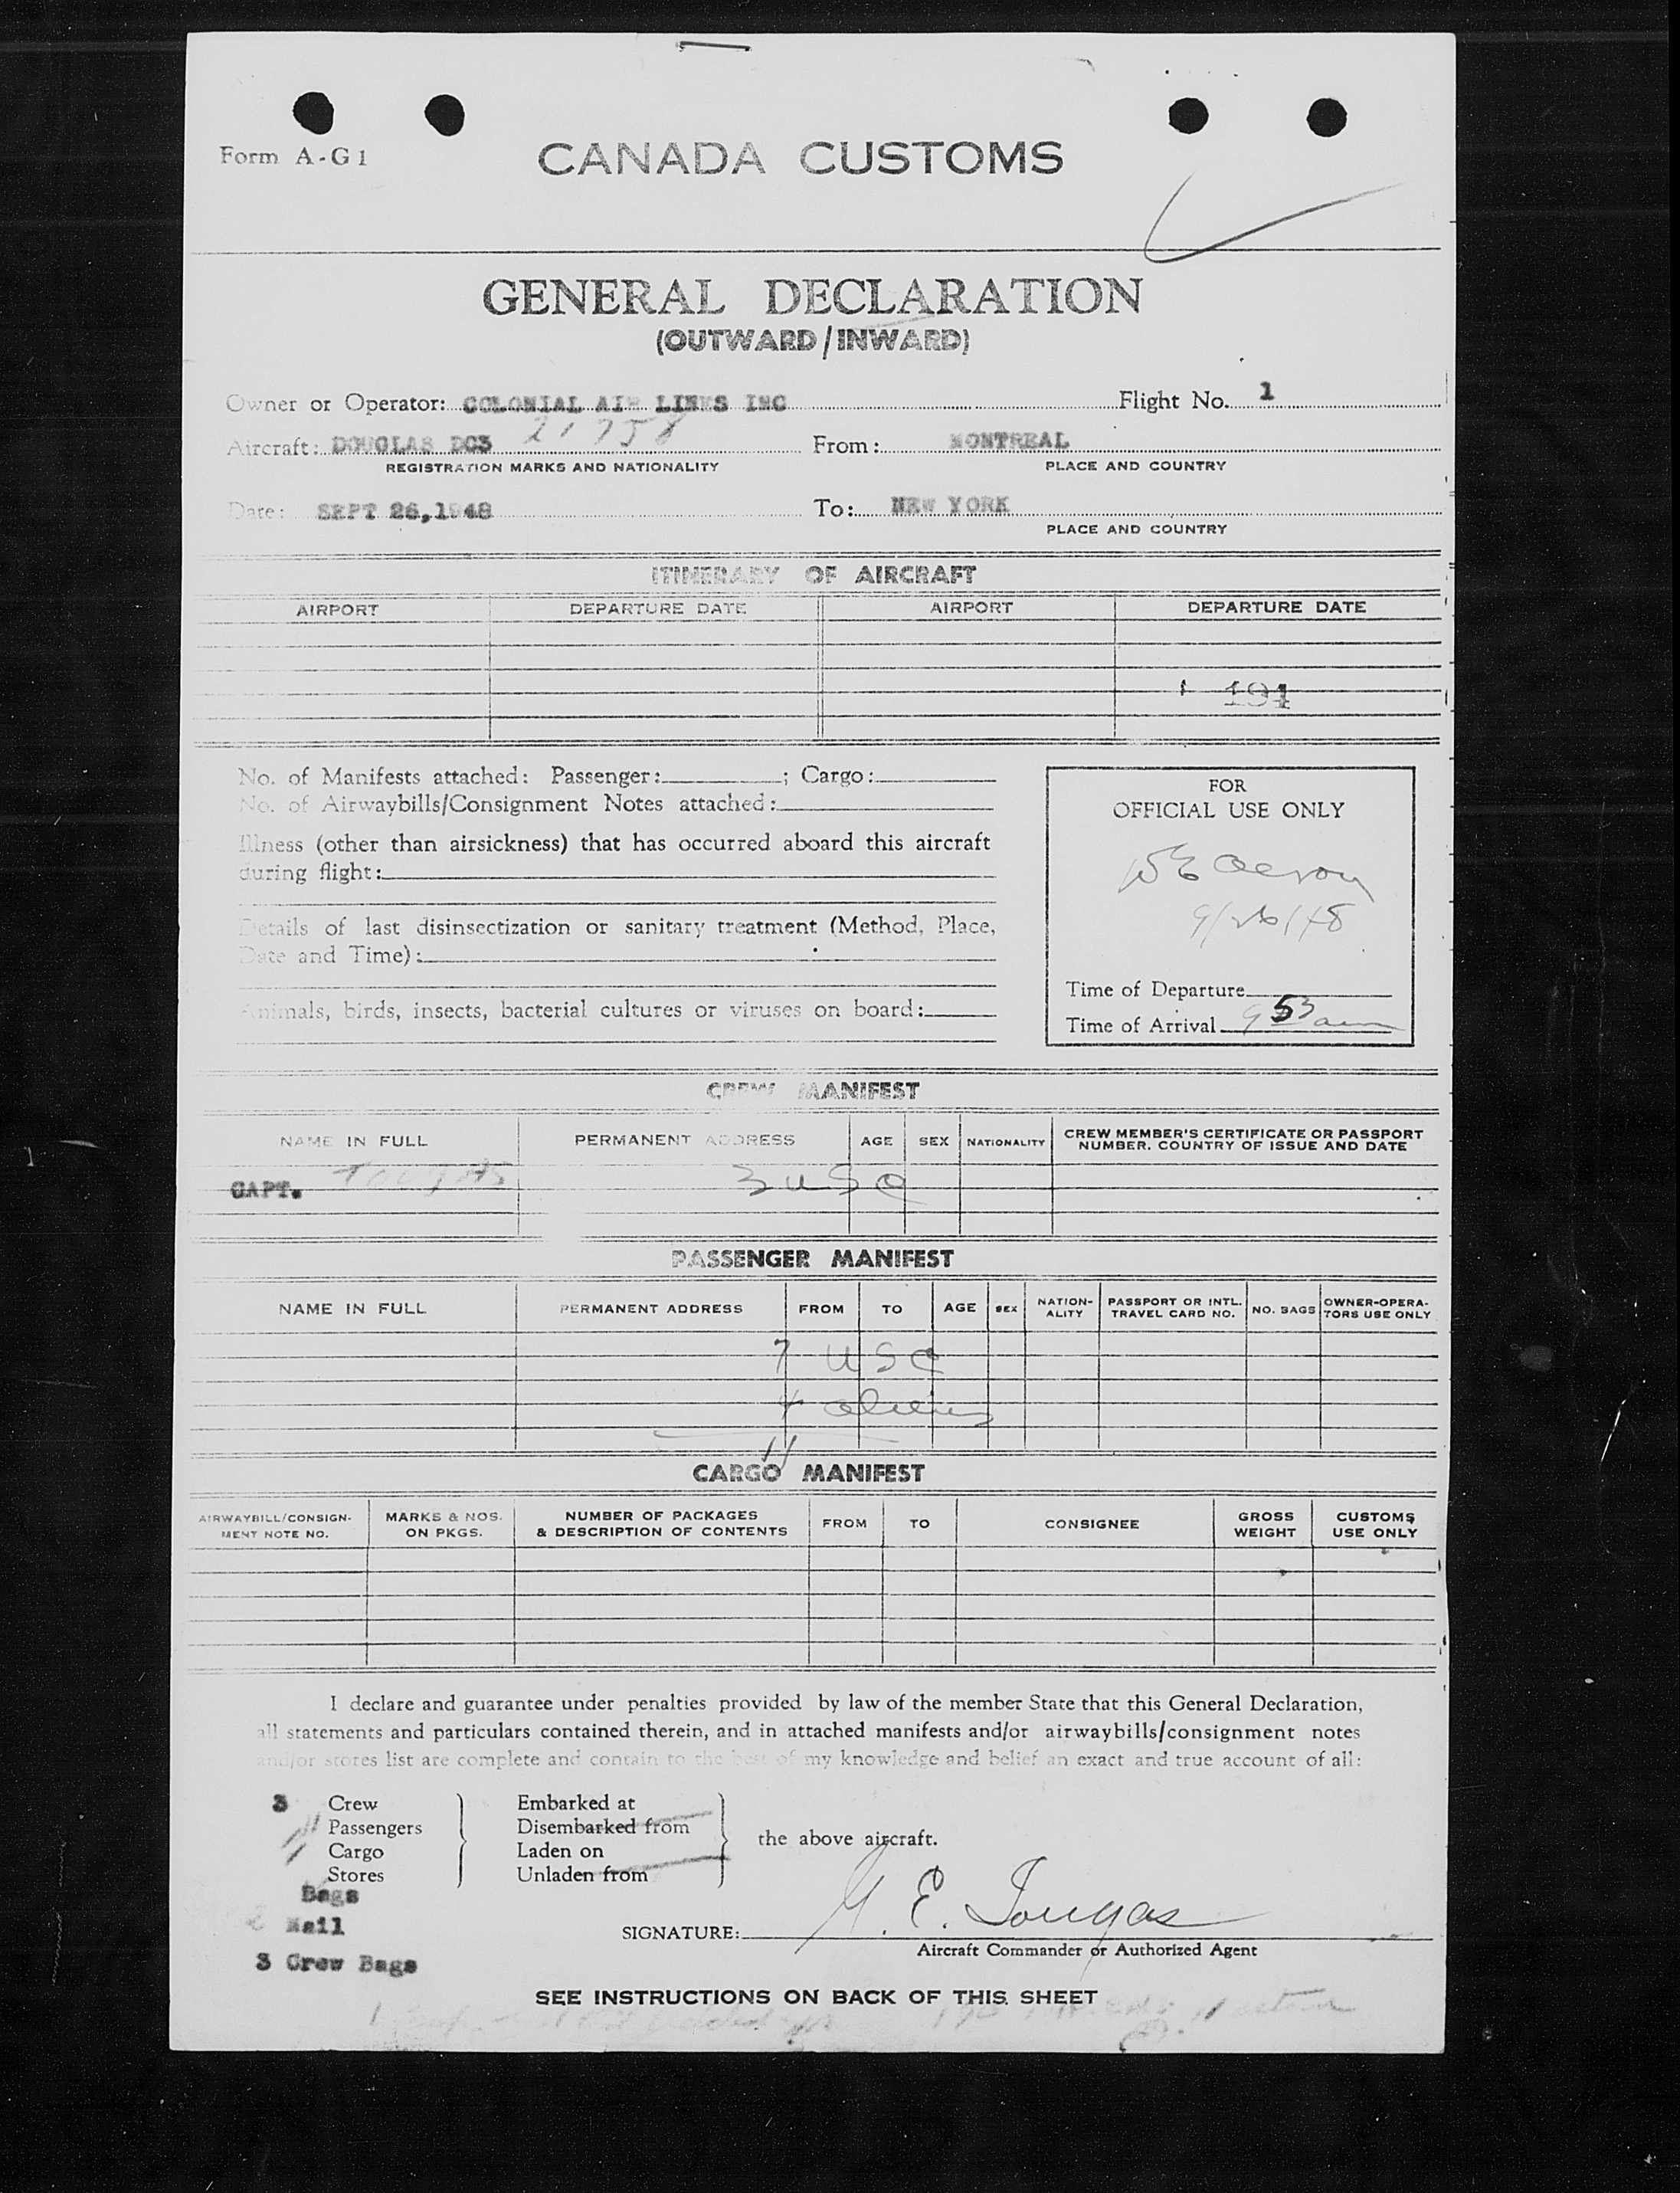 Form A-G1
CANADA CUSTOMS
GENERAL DECLARATION
(OUTWARD/INWARD)
Owner or Operator: COLONIAL AIR LINES INC Flight No. 1
Aircraft: DOUGLAS DC3 21758 From: MONTREAL
REGISTRATION MARKS AND NATIONALITY PLACE AND COUNTRY
Date: SEPT 26,1948 To: NEW YORK
PLACE AND COUNTRY
ITINERARY OF AIRCRAFT
AIRPORT DEPARTURE DATE AIRPORT DEPARTURE DATE
191
No. of Manifests attached: Passenger: ; Cargo:
No. of Airwaybills/Consignment Notes attached:
Illness (other than airsickness) that has occurred aboard this aircraft
during flight:
Details of last disinsectization or sanitary treatment (Method, Place,
Date and Time):
Animals, birds, insects, bacterial cultures or viruses on board:
FOR
OFFICIAL USE ONLY
9/26/48
Time of Departure
Time of Arrival 9 53 am
CREW MANIFEST
NAME IN FULL PERMANENT ADDRESS AGE SEX NATIONALITY CREW MEMBER'S CERTIFICATE OR PASSPORT
NUMBER, COUNTRY OF ISSUE AND DATE
CAPT. TOUGAS 3 USC
PASSENGER MANIFEST
NAME IN FULL PERMANENT ADDRESS FROM TO AGE SEX NATION-
ALITY PASSPORT OR INTL.
TRAVEL CARD NO. NO. BAGS OWNER-OPERA-
TORS USE ONLY
7 USC
4 aliens
11
CARGO MANIFEST
AIRWAYBILL/CONSIGN-
MENT NOTE NO. MARKS & NOS.
ON PKGS. NUMBER OF PACKAGES
& DESCRIPTION OF CONTENTS FROM TO CONSIGNEE GROSS
WEIGHT CUSTOMS
USE ONLY
I declare and guarantee under penalties provided by law of the member State that this General Declaration,
all statements and particulars contained therein, and in attached manifests and/or airwaybills/consignment notes
and/or stores list are complete and contain to the best of my knowledge and belief an exact and true account of all:
3 Crew Embarked at
11 Passengers Disembarked from
Cargo Laden on
Stores Unladen from
the above aircraft.
Bags
Mail
3 Crew Bags
SIGNATURE: G. E. Tougas
Aircraft Commander or Authorized Agent
SEE INSTRUCTIONS ON BACK OF THIS SHEET